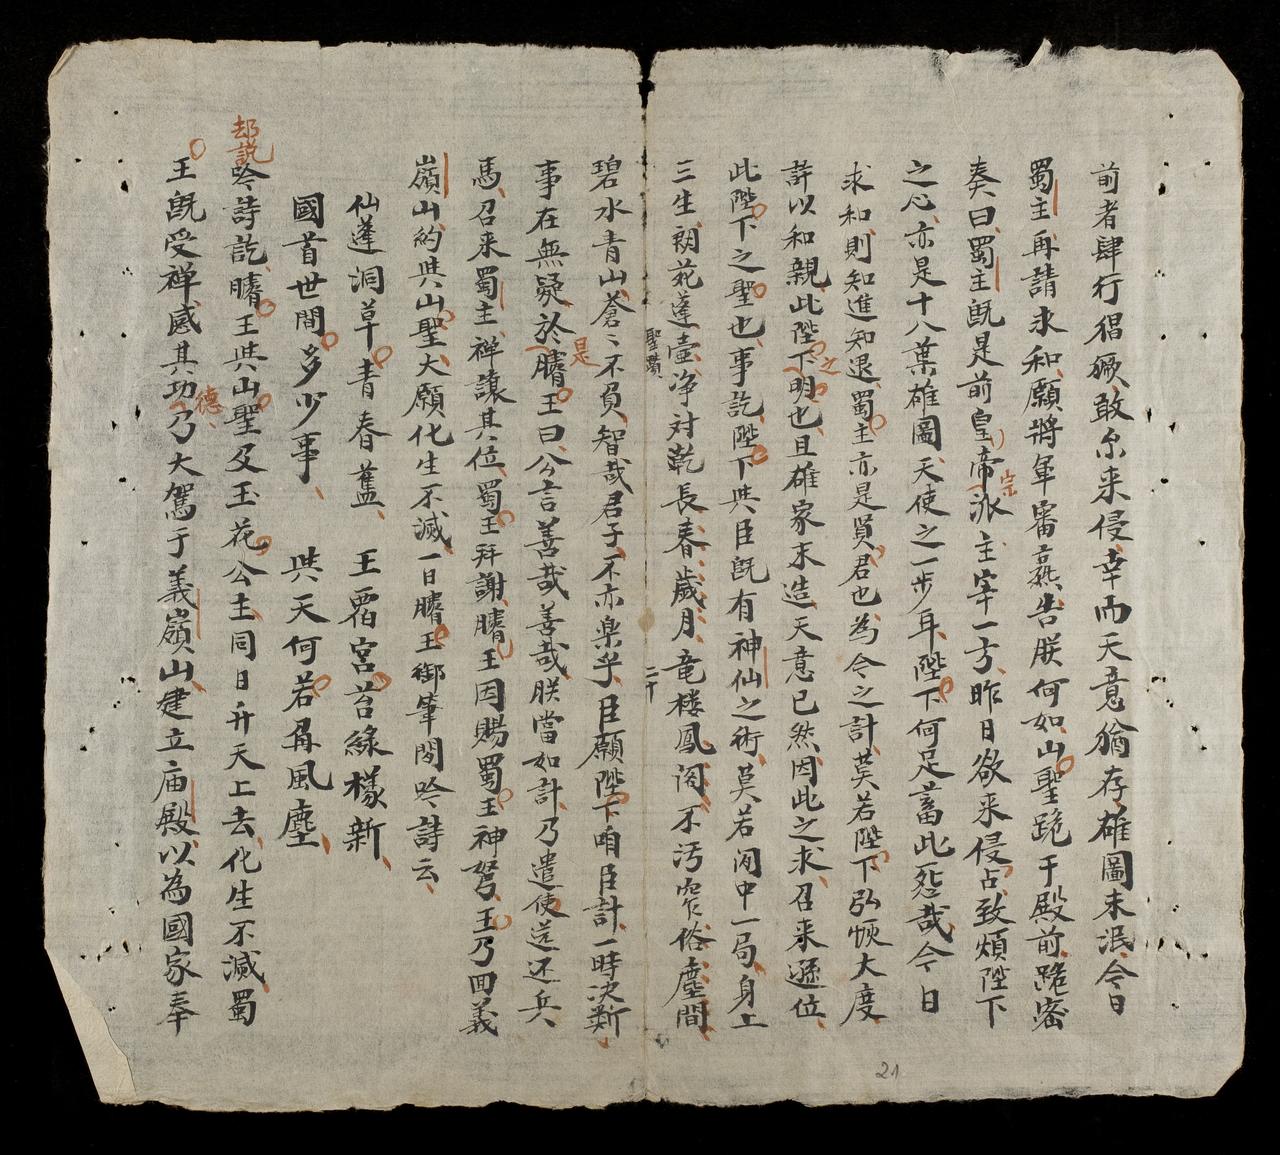 前者肆行猖獗敢尓来侵幸而天意猶存雄圖未泯今日
蜀主再請求和願將軍審焉告朕何如山聖跪于殿前跪密
奏曰蜀主既是前皇帝宗派主宰一方昨日欲来侵占致煩陛下
之心亦是十八葉雄圖天使之一步耳陛下何足蓄此怨哉今日
求和則知進知退蜀主亦是賢君也為今之計莫若陛下弘恢大度
許以和親此陛下之明也且雄家末造天意已然因此之求召来遜位
此陛下之聖也事訖陛下與臣既有神仙之術莫若閬中一局身上
三生朝苑蓬壺净对乾長春歲月竜楼鳳阁不污窄俗塵間
聖贊
二十
碧水青山蒼〻不負智哉君子不亦樂乎臣願陛下咱臣計一時决断
事在無疑於是睶王曰公言善哉善哉朕當如計乃遣使送还兵
馬召来蜀主禅讓其位蜀王拜謝睶王因賜蜀王神弩王乃回義
嶺山約與山聖大願化生不滅一日睶王御筆閒吟詩云
仙蓬洞草青春舊 王霤宮苔綠樣新
國首世間多少事 與天何若再風塵
却說吟詩訖睶王與山聖及玉花公主同日升天上去化生不滅蜀
王既受禅感其功德乃大駕于義嶺山建立庙殿以為國家奉
21